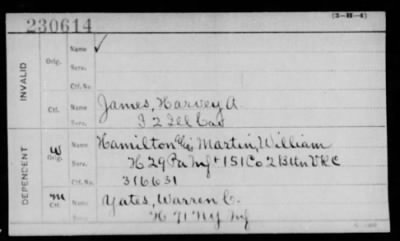 230614
(3-H-4)
INVALID
Orig.
Name ✓
Serv.
Ctf. No.
Ctf.
Name James, Harvey A.
Serv. I 2 Ill Cav
DEPENDENT
W
Orig.
Name Hamilton alias Martin, William
Serv. K 29 Pa Inf + 151 Co 2 Btln VRC
Ctf. No. 316631
m
Ctf.
Name Yates, Warren C.
Serv. K 71 NY Inf